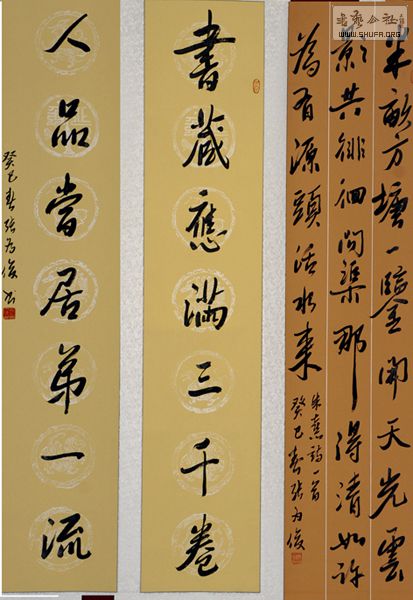 书艺公社
WWW.SHUFA.ORG
半畝方塘一鑒開天光雲
影共徘徊問渠那得清如許
為有源頭活水來
朱熹詩一首
癸巳春張為俊
書藏應滿三千卷
人品當居第一流
癸巳春張為俊書